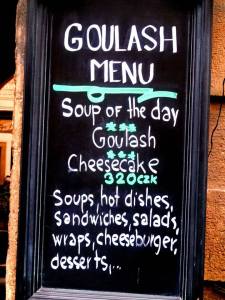 GOULASH
MENU
Soup of the day
***
Goulash
***
Cheesecake
320CZK
Soups, hot dishes,
sandwiches, salads,
wraps, cheeseburger,
desserts,...